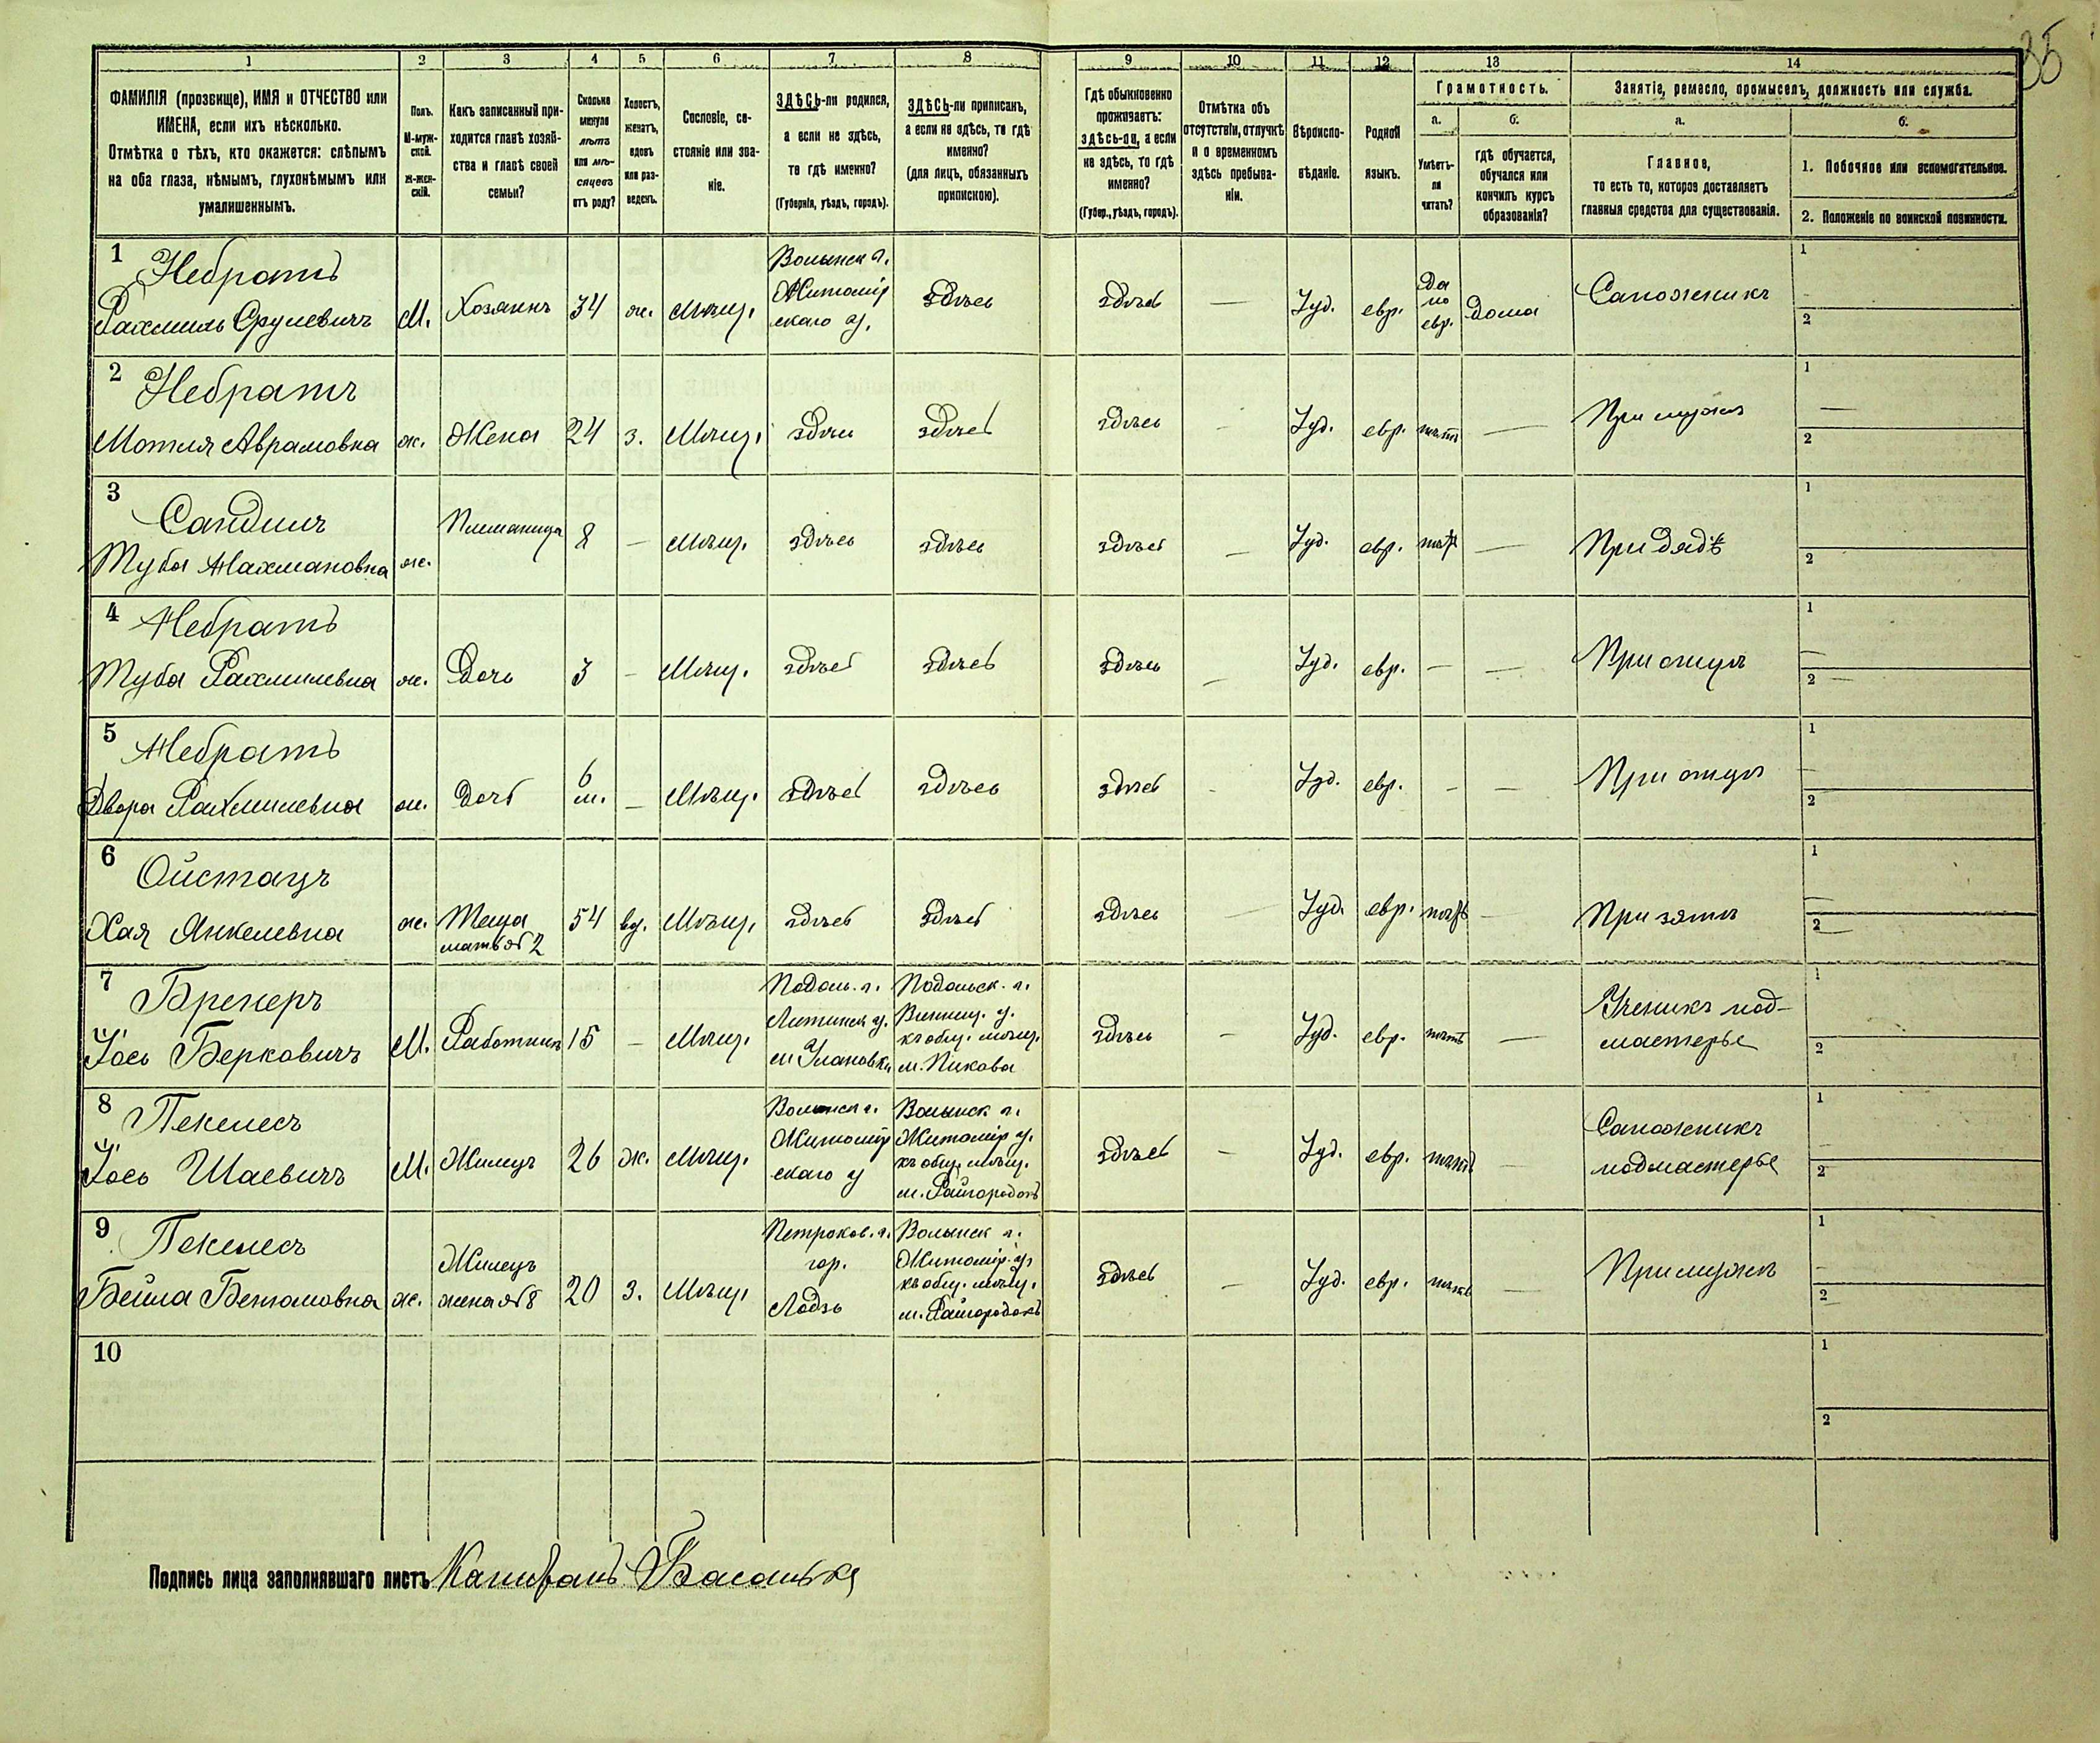 35
1 2 3 4 5 6 7 8 9 10 11 12 13 14
ФАМИЛІЯ (прозвище), ИМЯ и ОТЧЕСТВО или
ИМЕНА, если ихъ нѣсколько.
Отмѣтка о тѣхъ, кто окажется: слѣпымъ
на оба глаза, нѣмымъ, глухонѣмымъ или
умалишеннымъ.
Полъ.
М-муж-
ской.
Ж-жен-
скій.
Какъ записанный при-
ходится главѣ хозяй-
ства и главѣ своей
семьи?
Сколько
минуло
лѣтъ
или мѣ-
сяцевъ
отъ роду?
Холостъ,
женатъ,
вдовъ
или раз-
веденъ.
Сословіе, со-
стояніе или зва-
ніе.
ЗДѢСЬ-ли родился,
а если не здѣсь,
то гдѣ именно?
(Губернія, уѣздъ, городъ).
ЗДѢСЬ-ли приписанъ,
а если не здѣсь, то гдѣ
именно?
(для лицъ, обязанныхъ
припискою).
Гдѣ обыкновенно
проживаетъ:
здѣсь-ли, а если
не здѣсь, то гдѣ
именно?
(Губер., уѣздъ, городъ).
Отмѣтка объ
отсутствіи, отлучкѣ
и о временномъ
здѣсь пребыва-
ніи.
Вѣроиспо-
вѣданіе.
Родной
языкъ.
Грамотность.
а.
Умѣетъ-
ли
читать?
б.
гдѣ обучается,
обучался или
кончилъ курсъ
образованія?
Занятіе, ремесло, промыселъ, должность или служба.
а.
Главное,
то есть то, которое доставляетъ
главныя средства для существованія.
б.
1. Побочное или вспомогательное.
2. Положеніе по воинской повинности.
1 Небратъ
Рахмиль Срулевичъ М. Хозяинъ 34 ж. Мѣщ. Волынск г. Житомір скаго у. здѣсь здѣсь — Іуд. евр. Да по евр. Дома Сапожникъ 1 2
2 Небратъ
Мотля Аврамовна ж. Жена 24 з. Мѣщ. здѣсь здѣсь здѣсь - Іуд. евр. нѣтъ — При мужѣ 1 — 2
3 Сандлиъ
Туба Нахмановна ж. Племяница 8 — Мѣщ. здѣсь здѣсь здѣсь — Іуд. евр. нѣтъ — При дядѣ 1 2
4 Небратъ
Туба Рахмилевна ж. Дочь 3 — Мѣщ. здѣсь здѣсь здѣсь — Іуд. евр. — — При отцѣ 1 — 2 —
5 Небратъ
Двора Рахмилевна ж. Дочь 6 м. — Мѣщ. здѣсь здѣсь здѣсь - Іуд. евр. - - При отцѣ 1 - 2
6 Ойстацъ
Хая Янкелевна ж. Теща мать №2 54 вд. Мѣщ. здѣсь здѣсь здѣсь — Іуд. евр. нѣтъ - При зятѣ 1 — 2 —
7 Бренеръ
Іось Берковичъ М. Работникъ 15 — Мѣщ. Подоль. г. Литинск у. м Улановки Подольск. г. Винниц. у. къ общ. мѣщ. м. Пикова здѣсь — Іуд. евр. нѣтъ — Ученикъ под-
мастерье 1 2
8 Пекелесъ
Іось Шаевичъ М. Жилецъ 26 ж. Мѣщ. Волынск г. Житомір скаго у Волынск г. Житомір у. къ общ. мѣщ. м. Райгородокъ здѣсь — Іуд. евр. нѣтъ — Сапожникъ
подмастерье 1 2
9 Пекелесъ
Бейла Беньомовна ж. Жилецъ жена №8 20 з. Мѣщ. Петроков. г. гор. Лодзь Волынск г. Житомір. у. къ общ. мѣщ. м. Райгородокъ здѣсь — Іуд. евр. нѣтъ — При мужѣ 1 - 2 —
10 1 2
Подпись лица заполнявшаго листъ